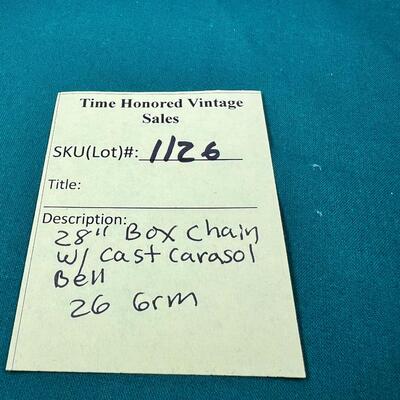 Time Honored Vintage
Sales
SKU(Lot)#: 1126
Title:
Description:
28" Box Chain
w/ Cast Carasol
Bell
26 Grm